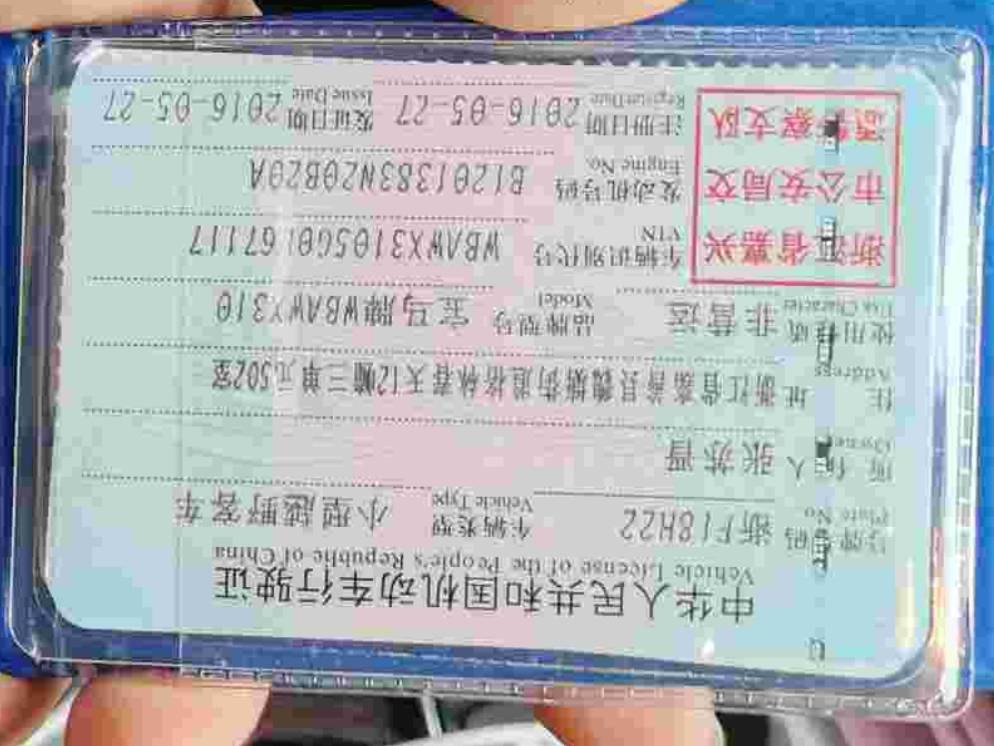 中华人民共和国机动车行驶证
Vehicle License of the People's Republic of China
号牌号码 浙F18H22 车辆类型 小型越野客车
Plate No. Vehicle Type
所有人
Owner
住址 浙江省嘉善县魏塘街道格林春天12幢三单元502室
Address
使用性质 非营运 品牌型号 宝马牌WBAWX310
Use Character Model
浙江省嘉兴
市公安局交
通警察支队
车辆识别代号 WBAWX3105G0167117
VIN
发动机号码 B1201383N20B20A
Engine No.
注册日期 2016-05-27 发证日期 2016-05-27
Register Date Issue Date